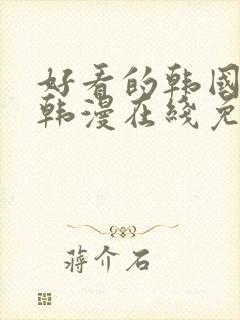 好看的韩国
韩漫在线免
蒋介石